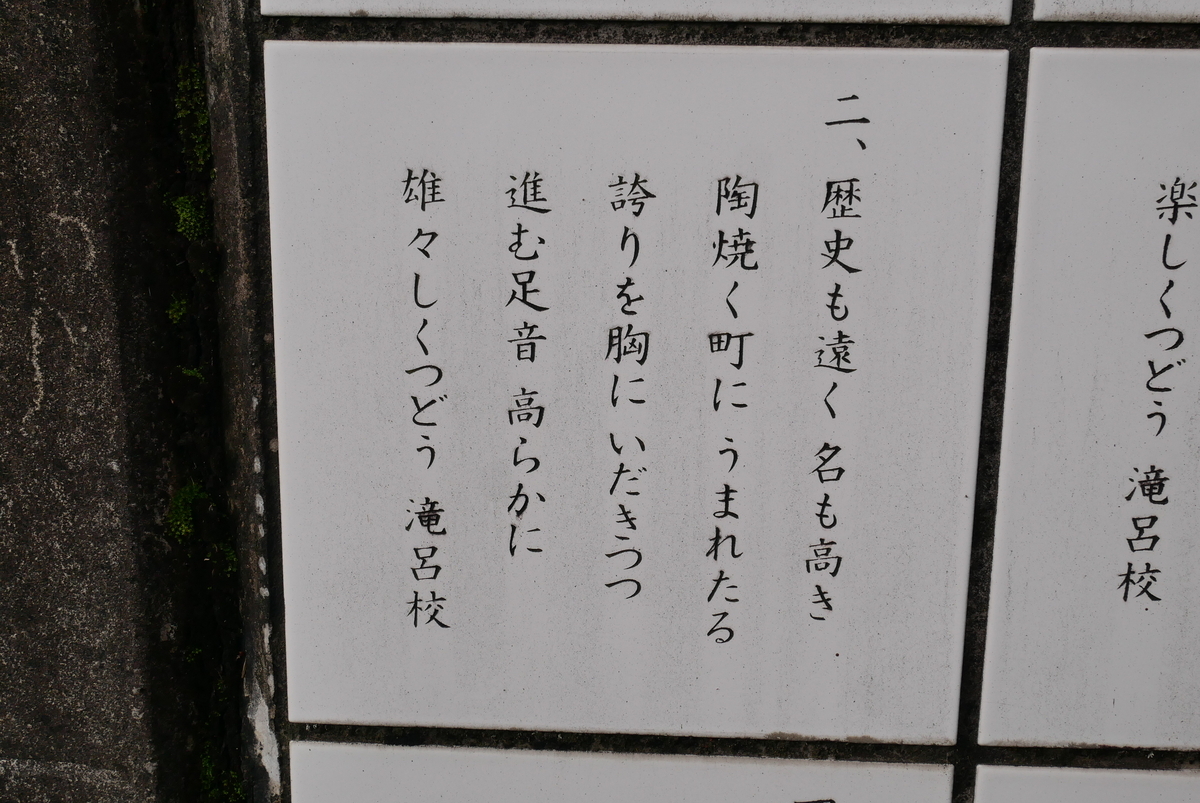 楽しくつどう 滝呂校
二、歴史も遠く 名も高き
陶焼く町に うまれたる
誇りを胸に いだきつつ
進む足音 高らかに
雄々しくつどう 滝呂校